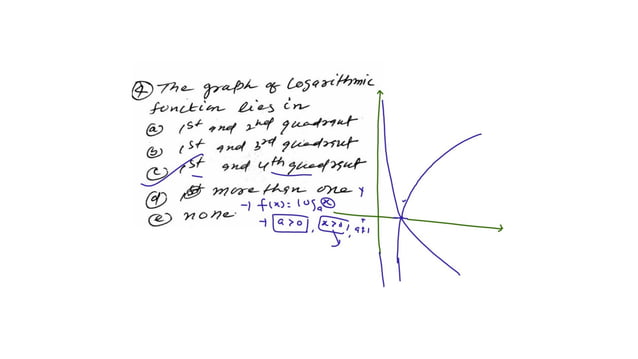 ④ The graph of Logarithmic
function lies in
(a) 1st and 2nd quadrant
(b) 1st and 3rd quadrant
(c) 1st and 4th quadrant
(d) more than one
(e) none
→ f(x) = log_a x
→ a>0, x>0,
Y